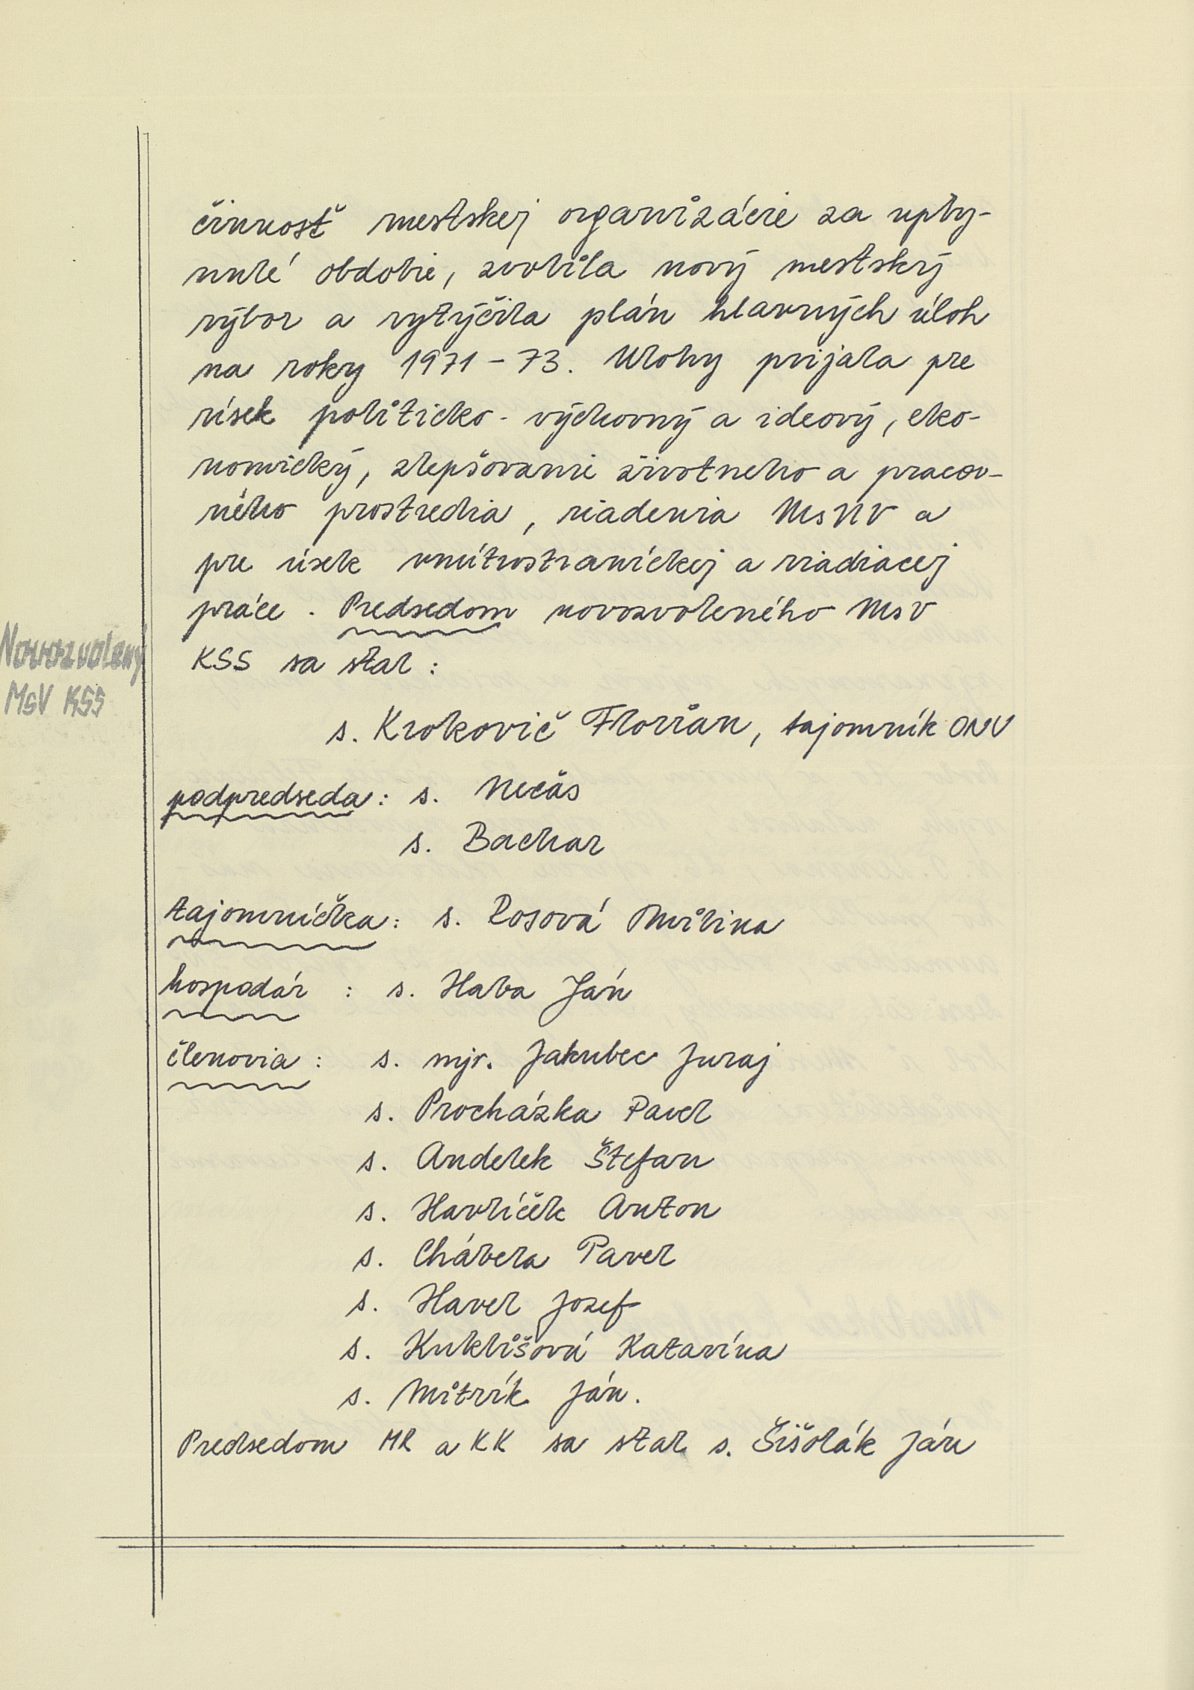 činnosť mestskej organizácie za uply-
nulé obdobie, zvolila nový mestský
výbor a vytýčila plán hlavných úloh
na roky 1971 - 73. Úlohy prijala pre
úsek politicko - výchovný a ideový, eko-
nomický, zlepšovanie životneho a pracov-
ného prostredia, riadenia MsNV a
pre úsek vnútrostraníckej a riadiacej
práce. Predsedom novozvoleného MsV
Novozvolený
MsV KSS
KSS sa stal:
s. Krokovič Florián, tajomník ONV
podpredseda: s. Nečas
s. Bachar
tajomníčka: s. Rosová Milina
hospodár : s. Haba Ján
členovia : s. mjr. Jakubec Juraj
s. Procházka Pavel
s. Andelek Štefan
s. Havlíček Anton
s. Chábera Pavel
s. Havel Jozef
s. Kuklišová Katarína
s. Mitrík Ján.
Predsedom MR a KK sa stal s. Šišolák Ján